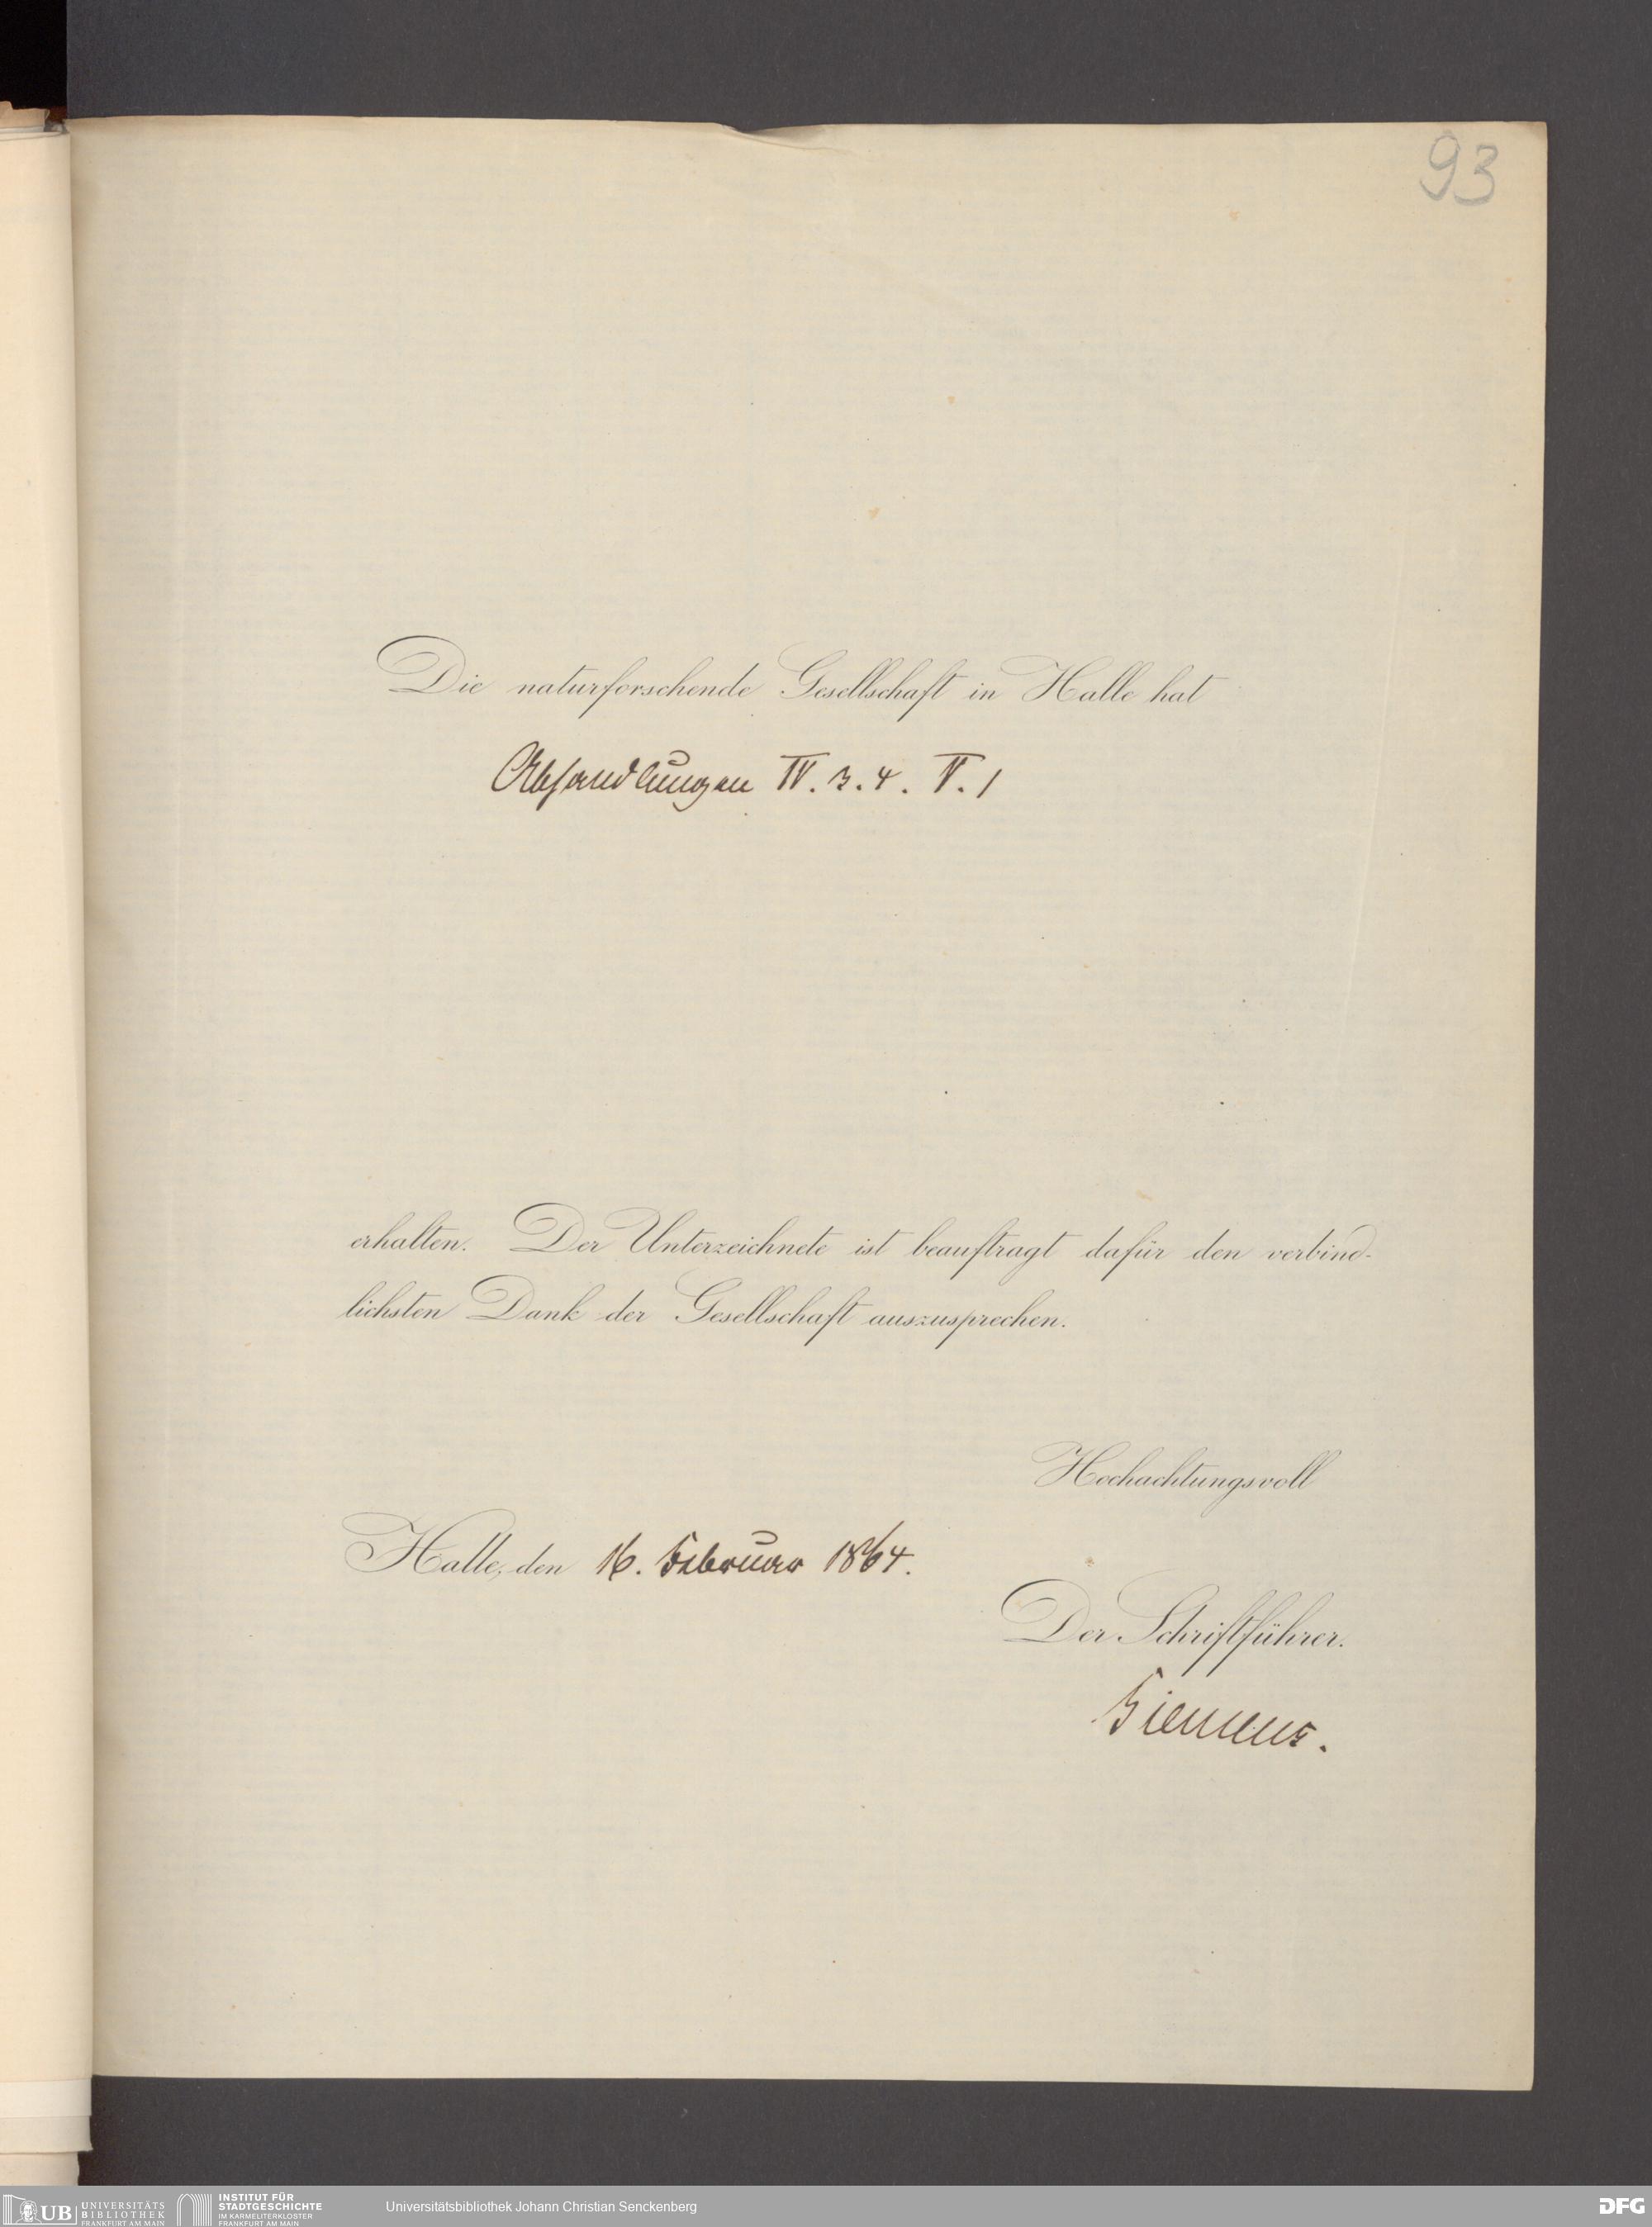 93
Die naturforschende Gesellschaft in Halle hat
Abhandlungen IV. 3. 4. V. 1
erhalten. Der Unterzeichnete ist beauftragt dafür den verbind-
lichsten Dank der Gesellschaft auszusprechen.
Hochachtungsvoll
Halle, den 16. Februar 1864.
Der Schriftführer.
Siemens.
UB UNIVERSITÄTS
BIBLIOTHEK
FRANKFURT AM MAIN
INSTITUT FÜR
STADTGESCHICHTE
IM KARMELITERKLOSTER
FRANKFURT AM MAIN
Universitätsbibliothek Johann Christian Senckenberg
DFG